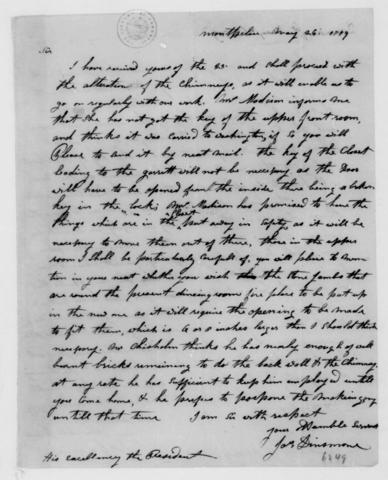 Montpelier May 26. 1809
Sir
I have received yours of the 23d and shall proceed with
the alteration of the Chimneys, as it will enable us to
go on regularly with our work. Mrs Madison informs me
that she has not got the key of the upper front room,
and thinks it was carried to washington, if so you will
Please to send it by next mail. the key of the Closet
leading to the garrett will not be necessary as the Door
will have to be opened from the inside there being a broken
key in the lock; Mrs Madison has promised to have the
things which are in the Closet put away in safety, as it will be
necessary to move them out of there, those in the upper
room I shall be particularly carefull of, you will please to men-
tion in your next whether you wish the stone jambs that
are round the present dineing room fire place to be put up
in the new one as it will require the opening to be made
to fit them, which is 4 or 6 inches larger than I should think
necessary. Mr Chisholm thinks he has nearly enough of well
burnt bricks remaining to do the back wall & the Chimney,
at any rate he has sufficient to keep him employed untill
you come home, & he prefers to postpone the making any
untill that time
I am Sir with respect
your Humble Servant
Jas Dinsmore
His excellency the President
6249